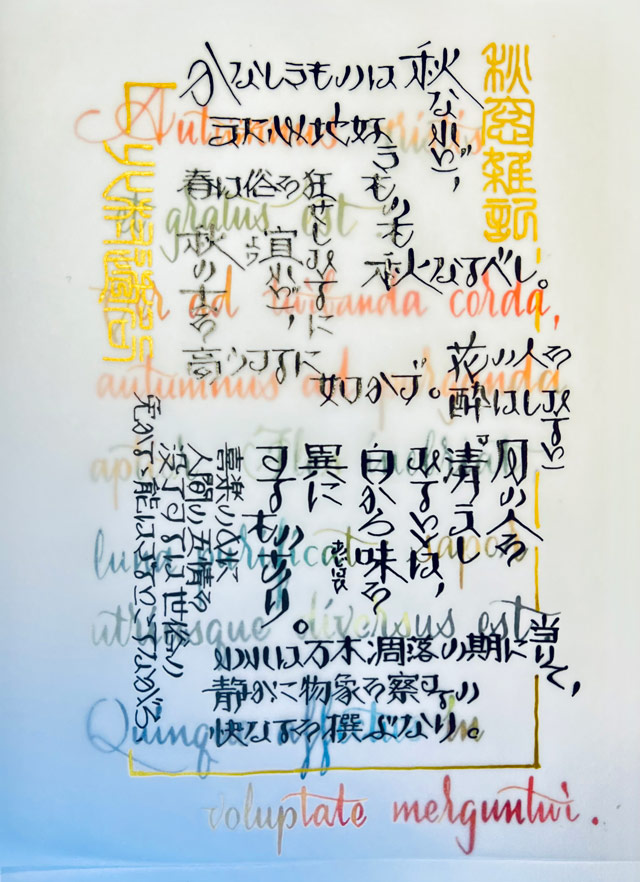 秋窓雑記
かなしきものは秋なれど、
また心地好きものも秋なるべし。
春は俗を狂せしむるに
宜れど、
秋の士を
高うするに如かず。
花の人を
酔はしむると
月の人を
清ましむるとは、
自から味を
異に
するものあり。
喜楽の中に
人間の五情を
没了するは世俗の
免かるゝ能はざるところながら、
われは万木凋落の期に当りて、
静かに物象を察するの
快なるを撰ぶなり。
Autumnus tristis
gratus est
ad turbanda corda,
autumnus ad purganda
aptior. Flos inebriat
luna purificat sapor
utriusque diversus est
Quinque affectus in
voluptate merguntur.